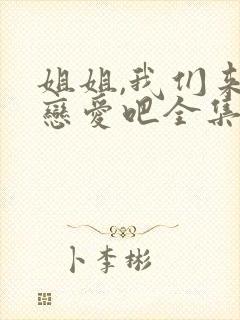 姐姐,我们来
戀愛吧全集
卜李彬